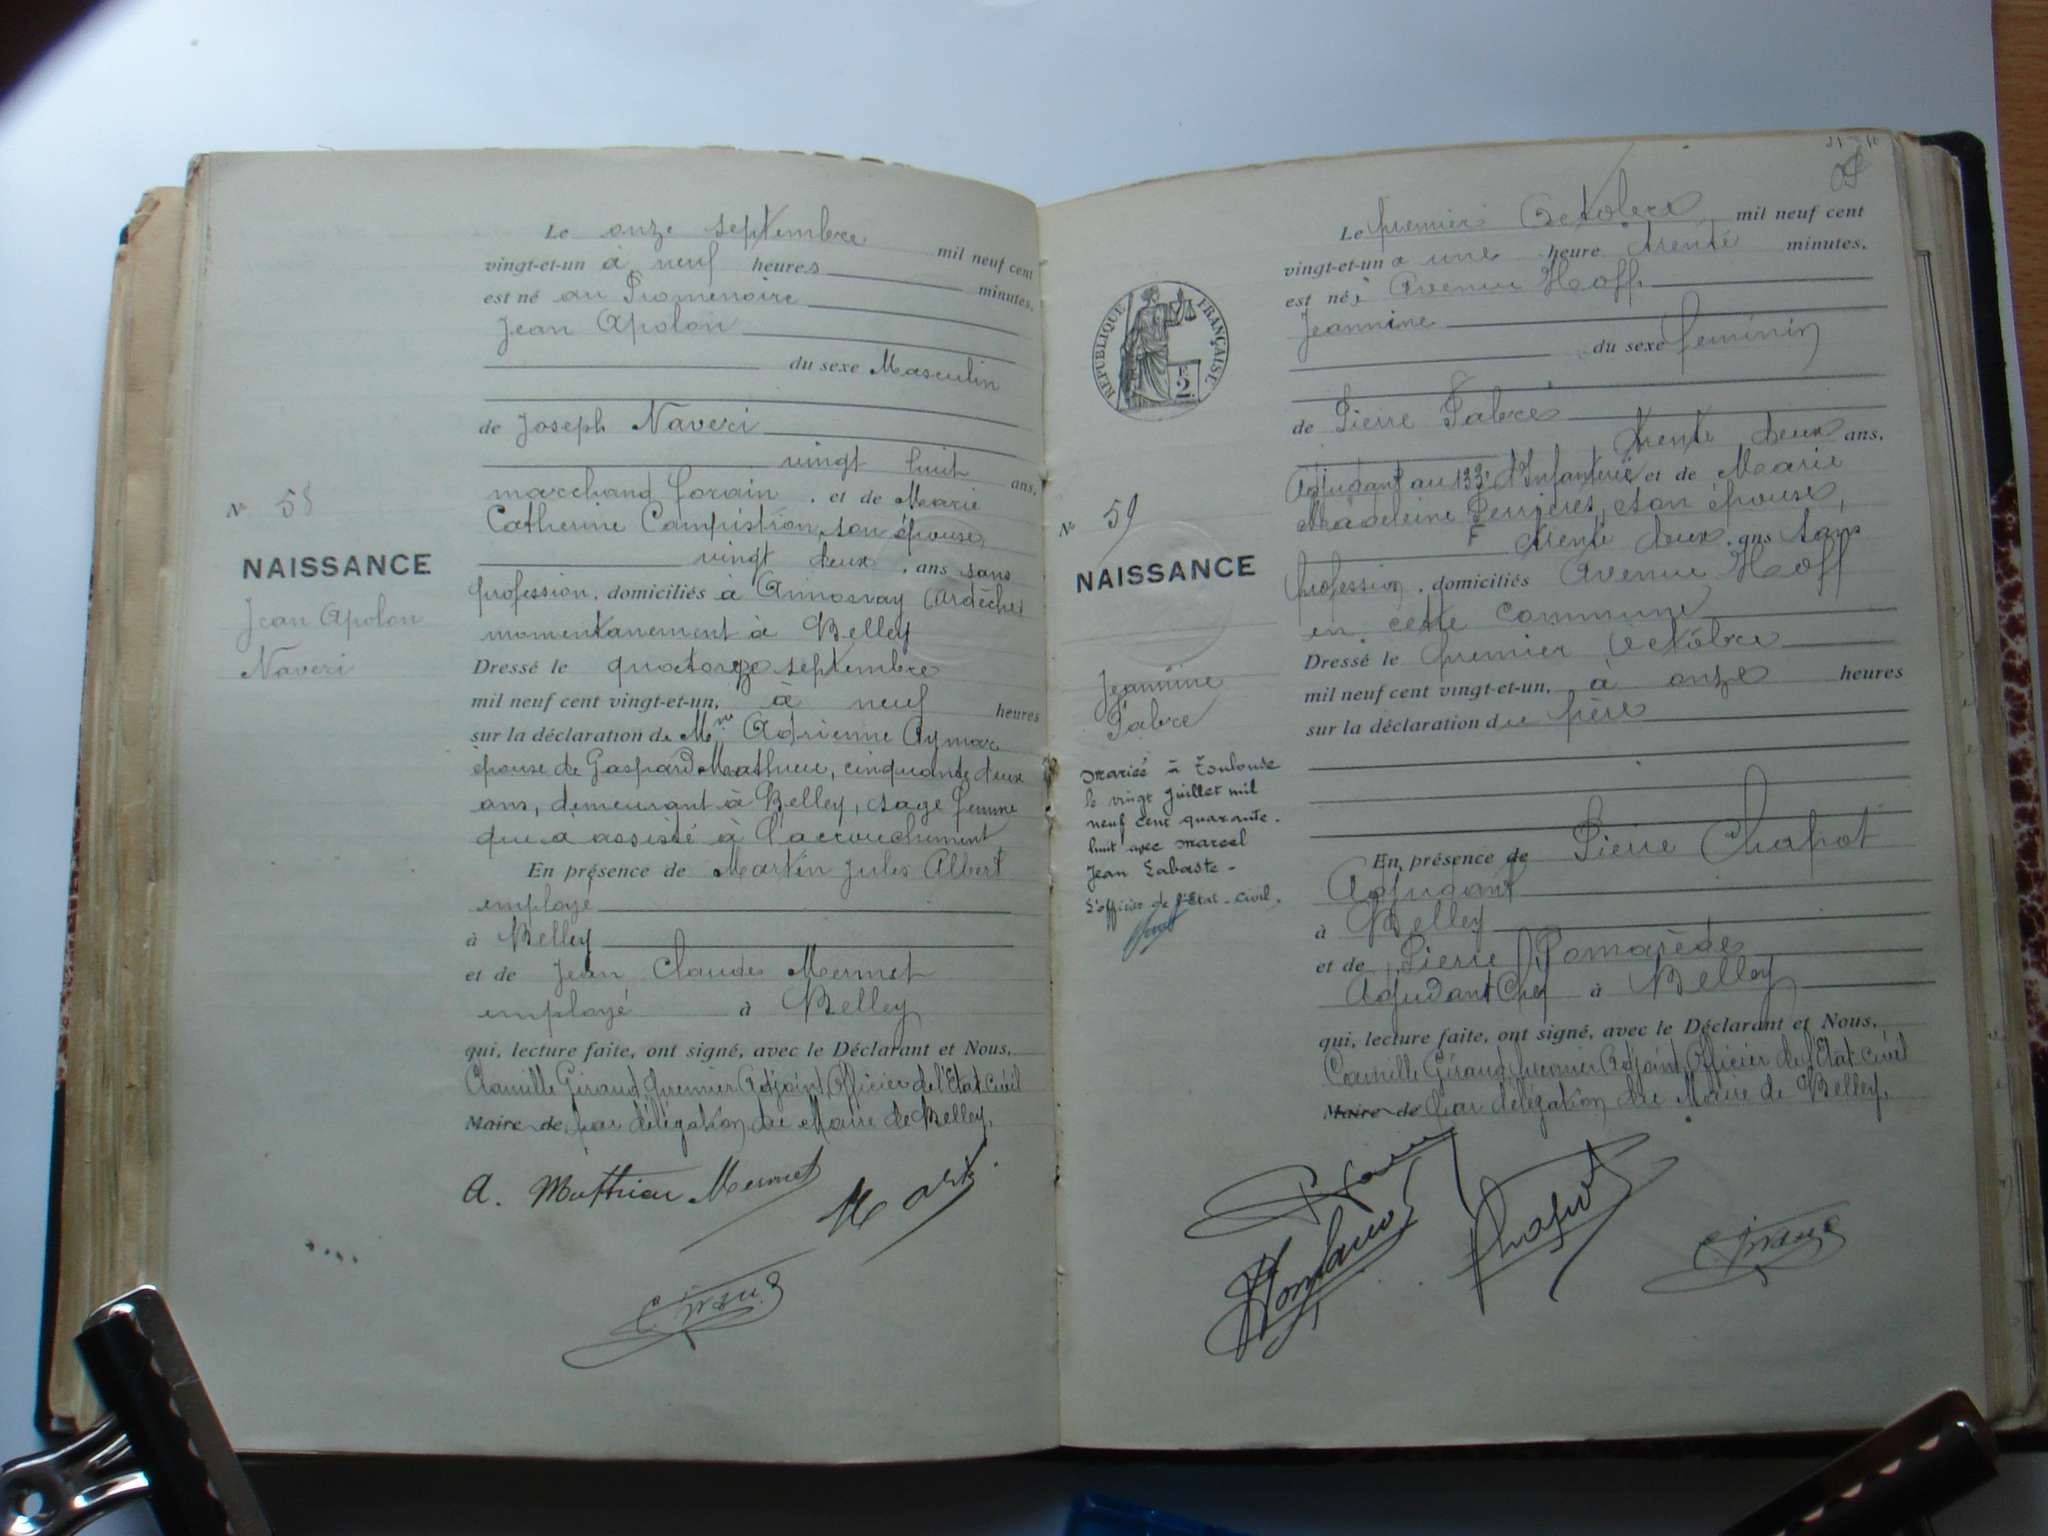 Le onze septembre mil neuf cent
vingt-et-un à neuf heures minutes,
est né au Promenoire
Jean Apolon
du sexe Masculin
de Joseph Naveri
vingt huit ans,
marchand forain, et de Marie
Catherine Campistron, son épouse,
vingt deux, ans sans
profession, domiciliés à Annonay (Ardèche)
momentanement à Belley
Dressé le quatorze septembre
mil neuf cent vingt-et-un, à neuf heures
sur la déclaration de Mme Adrienne Aymar
épouse de Gaspard Mathieu, cinquante deux
ans, demeurant à Belley, sage femme
qui a assisté à l'accouchement
En présence de Martin Jules Albert
employé
à Belley
et de Jean Claude Mermet
employé à Belley
qui, lecture faite, ont signé, avec le Déclarant et Nous,
Camille Giraud, premier Adjoint, Officier de l'Etat civil
Maire de par délégation du Maire de Belley,
A. Mathieu Mermet
C. Giraud
N° 58
NAISSANCE
Jean Apolon
Naveri
Le premier Octobre mil neuf cent
vingt-et-un à une heure trente minutes,
est née Avenue Hoff
Jeannine
du sexe feminin
de Pierre Fabre
trente deux ans,
Adjudant au 133e d'Infanterie et de Marie
Madeleine Perrières, son épouse,
F
trente deux, ans sans
profession, domiciliés Avenue Hoff
en cette commune
Dressé le premier Octobre
mil neuf cent vingt-et-un, à onze heures
sur la déclaration du père
En présence de Pierre Chapot
Adjudant
à Belley
et de Pierre Pomarède
Adjudant Chef à Belley
qui, lecture faite, ont signé, avec le Déclarant et Nous,
Camille Giraud, premier Adjoint, Officier de l'Etat civil
Maire de par délégation du Maire de Belley,
Chapot
C. Giraud
RÉPUBLIQUE FRANÇAISE
2
N° 59
NAISSANCE
Jeannine
Fabre
Mariée à Toulouse
le vingt Juillet mil
neuf cent quarante-
huit avec Marcel
Jean Labaste-
L'officier de l'Etat-Civil,